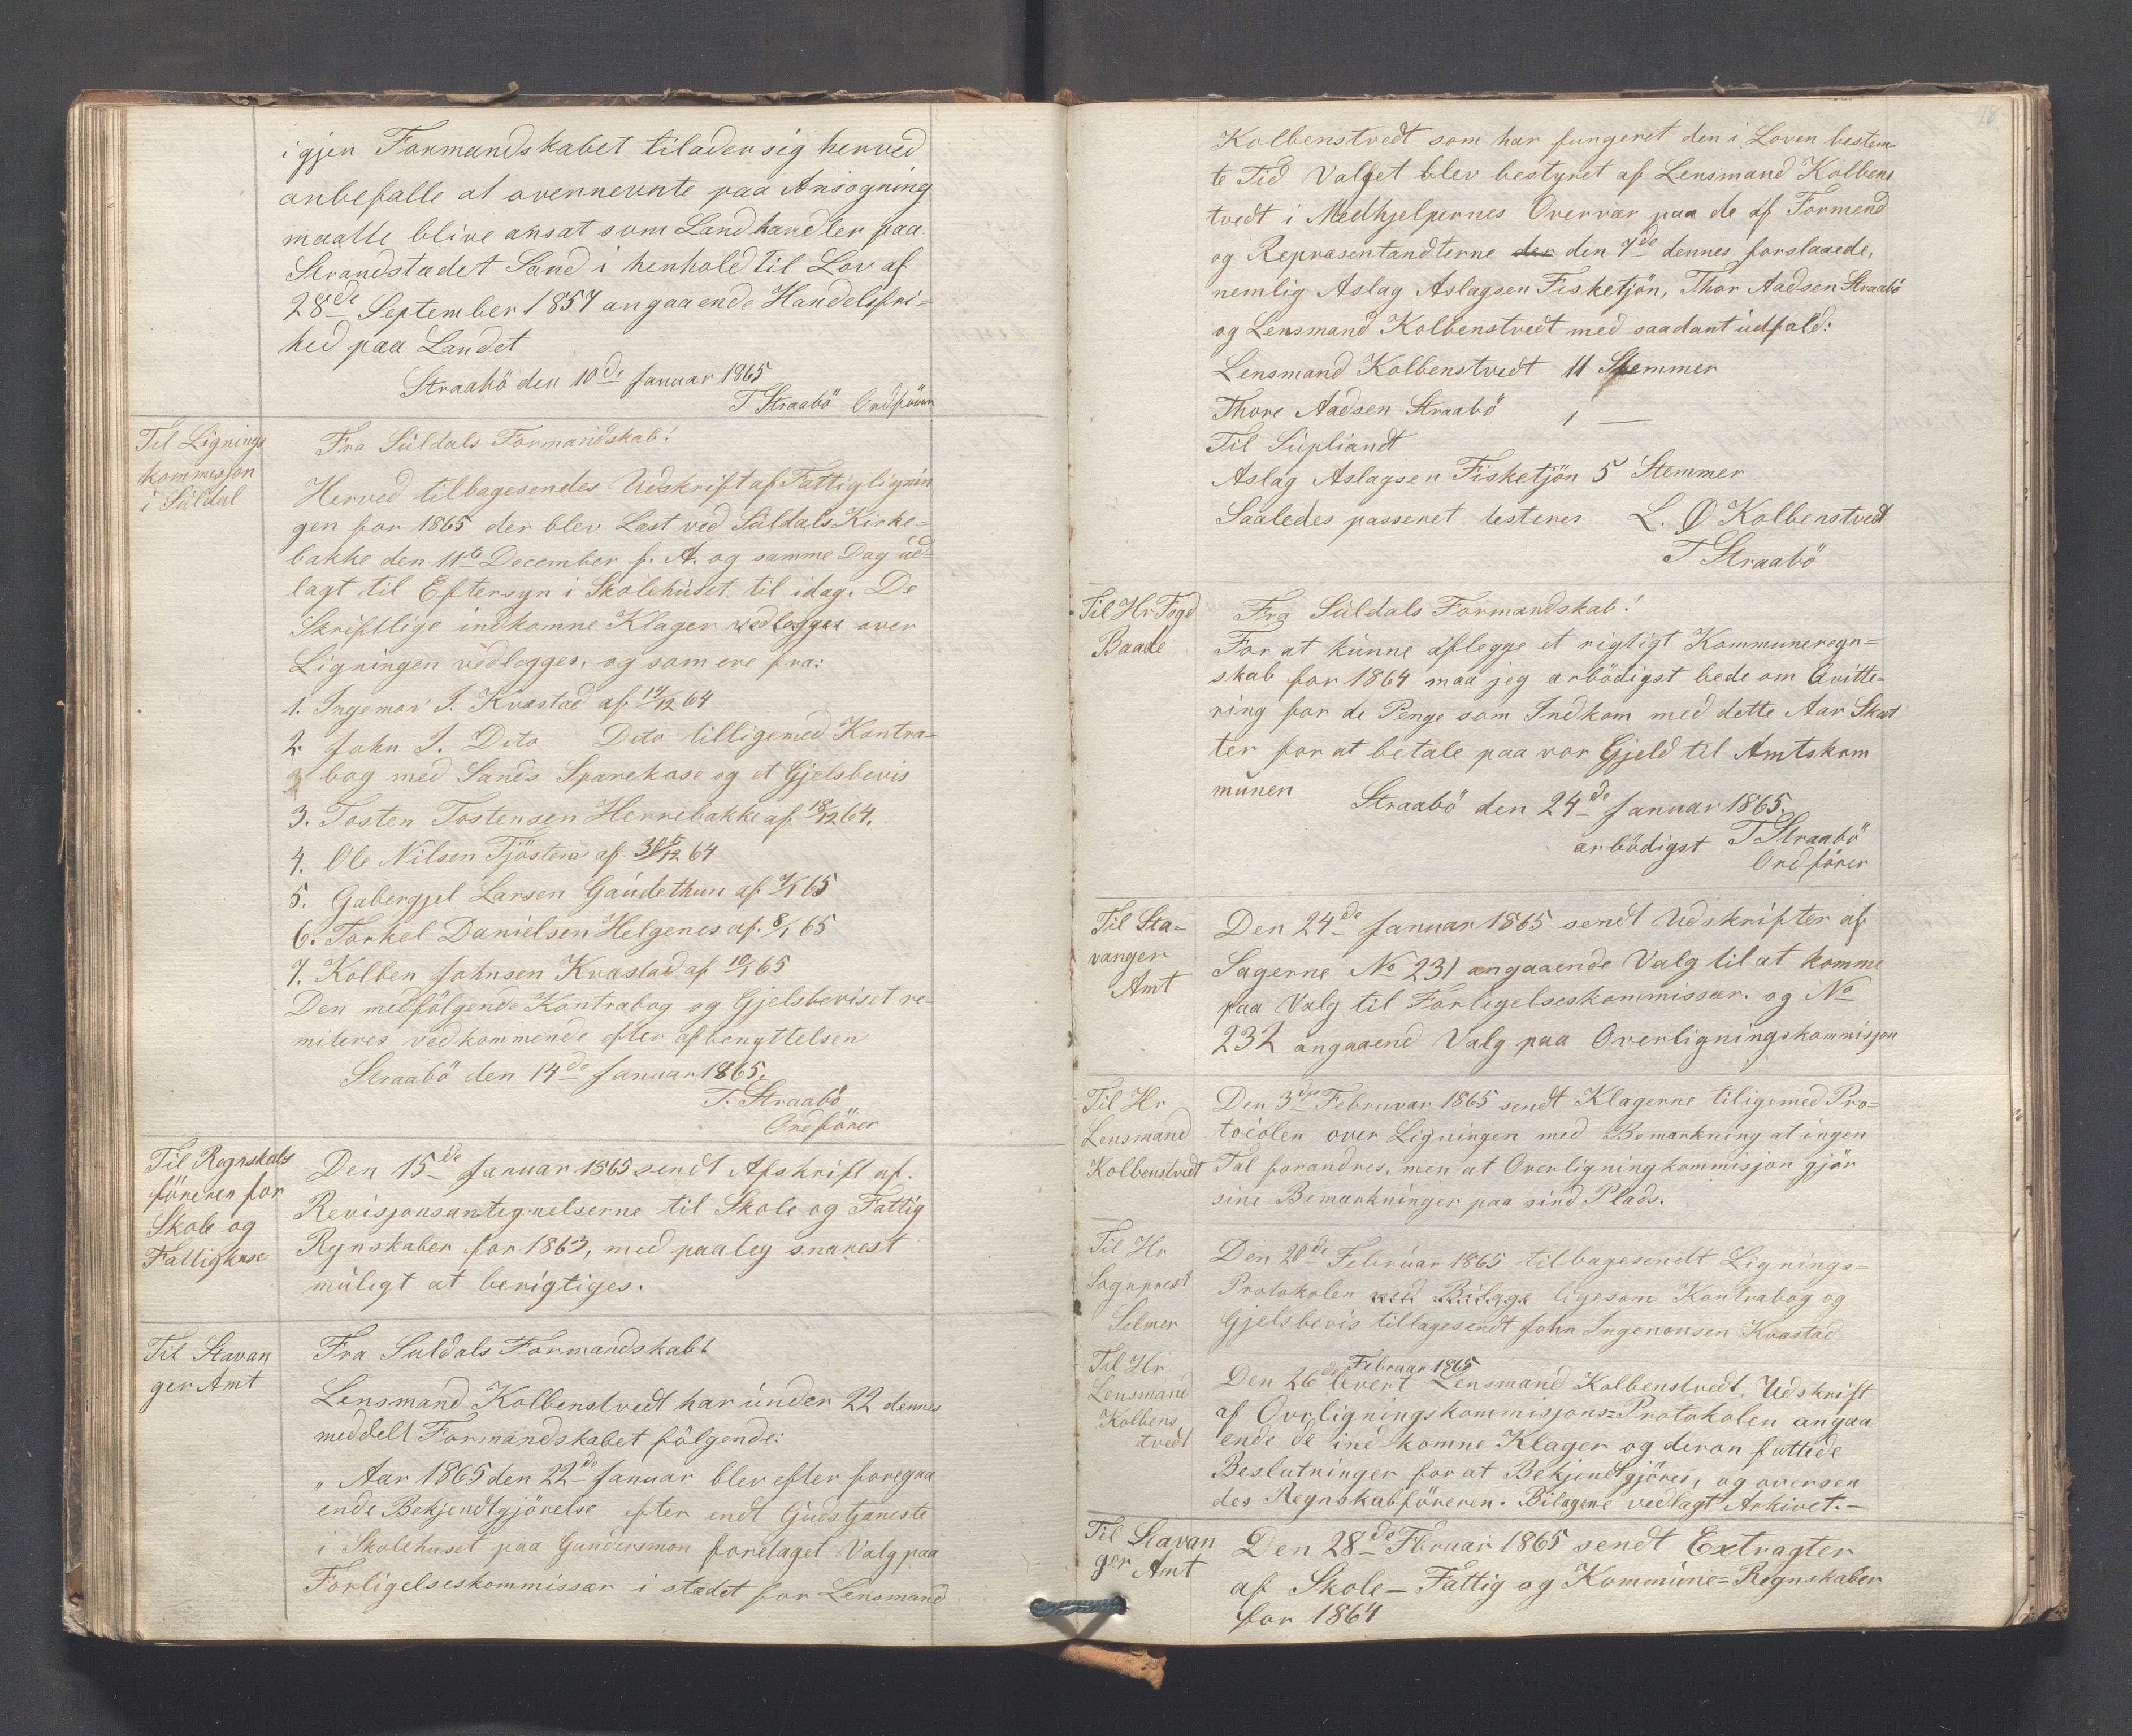 igjen Formandskabet tilader sig herved
anbefalle at overnevnte paa Ansøgning
maatte blive ansat som Landhandler paa
Strandstædet Sand i henhold til Lov af
28de September 1857 angaaende Handelsfri-
hed paa Landet
Straabö den 10de Januar 1865
T Straabö Ordförer
Til Lignings
kommisjon
i Suldal
Fra Suldals Formandskab!
Herved tilbagesendes Udskrift af Fattiglignin
gen for 1865 der blev Læst ved Suldals Kirke-
bakke den 11te December f. A. og samme Dag ud-
lagt til Eftersyn i Skolehuset til idag. De
Skriftlige indkomne Klager vedlegges over
Ligningen vedlegges, og som ere fra:
1. Ingemar J. Kvæstad af 14/12 64
2. John I. Dito Dito tilligemed Kontra-
bog med Sands Sparekase og et Gjelsbevis
3. Tosten Tostensen Herrebakke af 18/12 64.
4. Ole Nilsen Tjösteim af 31/12 64
5. Gabergjel Larsen Gaudethun af 7/1 65
6. Torkel Danielsen Helgenes af 8/1 65
7. Kolben Johnsen Kvæstad af 10/1 65
Den medfölgende Kontrabog og Gjelsbeviset re-
miteres vedkommende efter afbenyttelsen
Straabö den 14de Januar 1865.
T. Straabö
Ordförer
Til Regnskabs
föreren for
Skole og
Fattigkase
Den 15de Januar 1865 sendt Afskrift af
Revisjonsantegnelserne til Skole og Fattig
Regnskaber for 1863, med paaleg snarest
muligt at berigtiges.
Til Stavan
ger Amt
Fra Suldals Formandskab!
Lensmand Kolbenstvedt har under 22 dennes
meddelt Formandskabet fölgende:
„ Aar 1865 den 22de Januar blev efter foregaa
ende Bekjendtgjörelse efter endt Gudstjaneste
i Skolehuset paa Gundersmon foretaget Valg paa
Forligelseskommissær i stædet for Lensmand
78
Kolbenstvedt som har fungeret den i Loven bestem-
te Tid Valget blev bestyret af Lensmand Kolbens
tvedt i Medhjelpernes Overvær paa de af Formend
og Repræsentandterne der den 7de dennes forslaaede,
nemlig Aslag Aslagsen Fisketjön, Thor Aadsen Straabö
og Lensmand Kolbenstvedt med saadant udfald:
Lensmand Kolbenstvedt 11 Stemmer
Thore Aadsen Straabö 1 —
Til Supliandt
Aslag Aslagsen Fisketjön 5 Stemmer
Saaledes passeret testeres L. Ø Kolbenstvedt
T Straabö
Til Hr Fogd
Baade
Fra Suldals Formandskab!
For at kunne aflegge et rigtigt Kommuneregn-
skab for 1864 maa jeg ærbödigst bede om Qvitte-
ring for de Penge som Indkom med dette Aar Skat
ter for at betale paa vor Gjeld til Amtskom
munen
Straabö den 24de Januar 1865.
ærbödigst T Straabö
Ordförer
Til Sta-
vanger
Amt
Den 24de Januar 1865 sendt Udskrifter af
Sagerne No 231 angaaende Valg til at komme
paa Valg til Forligelseskommissær. og No
232 angaaend Valg paa Overligningskommisjon
Til Hr
Lensmand
Kolbenstvedt
Den 3die Februvar 1865 sendt Klagerne tiligemed Pro-
tocolen over Ligningen med Bemærkning at ingen
Tal forandres, men at Overligningkommisjon gjör
sine Bemærkninger paa sind Plads.
Til Hr
Sognprest
Selmer
Den 20de Februar 1865 tilbagesendt Lignings-
Protokolen med Bilage ligesom Kontrabog og
Gjelsbevis tilbagesendt John Ingemonsen Kvæstad
Til Hr
Lensmand
Kolbens
tvedt
Den 26de Februar 1865 levert Lensmand Kolbenstvedt. Udskrift
af Overligningskommisjons-Protokolen angaa
ende de ind komne Klager og deron fattede
Beslutninger for at Bekjendtgjöres, og oversen
des Regnskabföreren. Bilagene vedlagt Arkivet.—
Til Stavan
ger Amt
Den 28de Fbruar 1865 sendt Extragter
af Skole- Fattig og Kommune-Regnskaber
for 1864